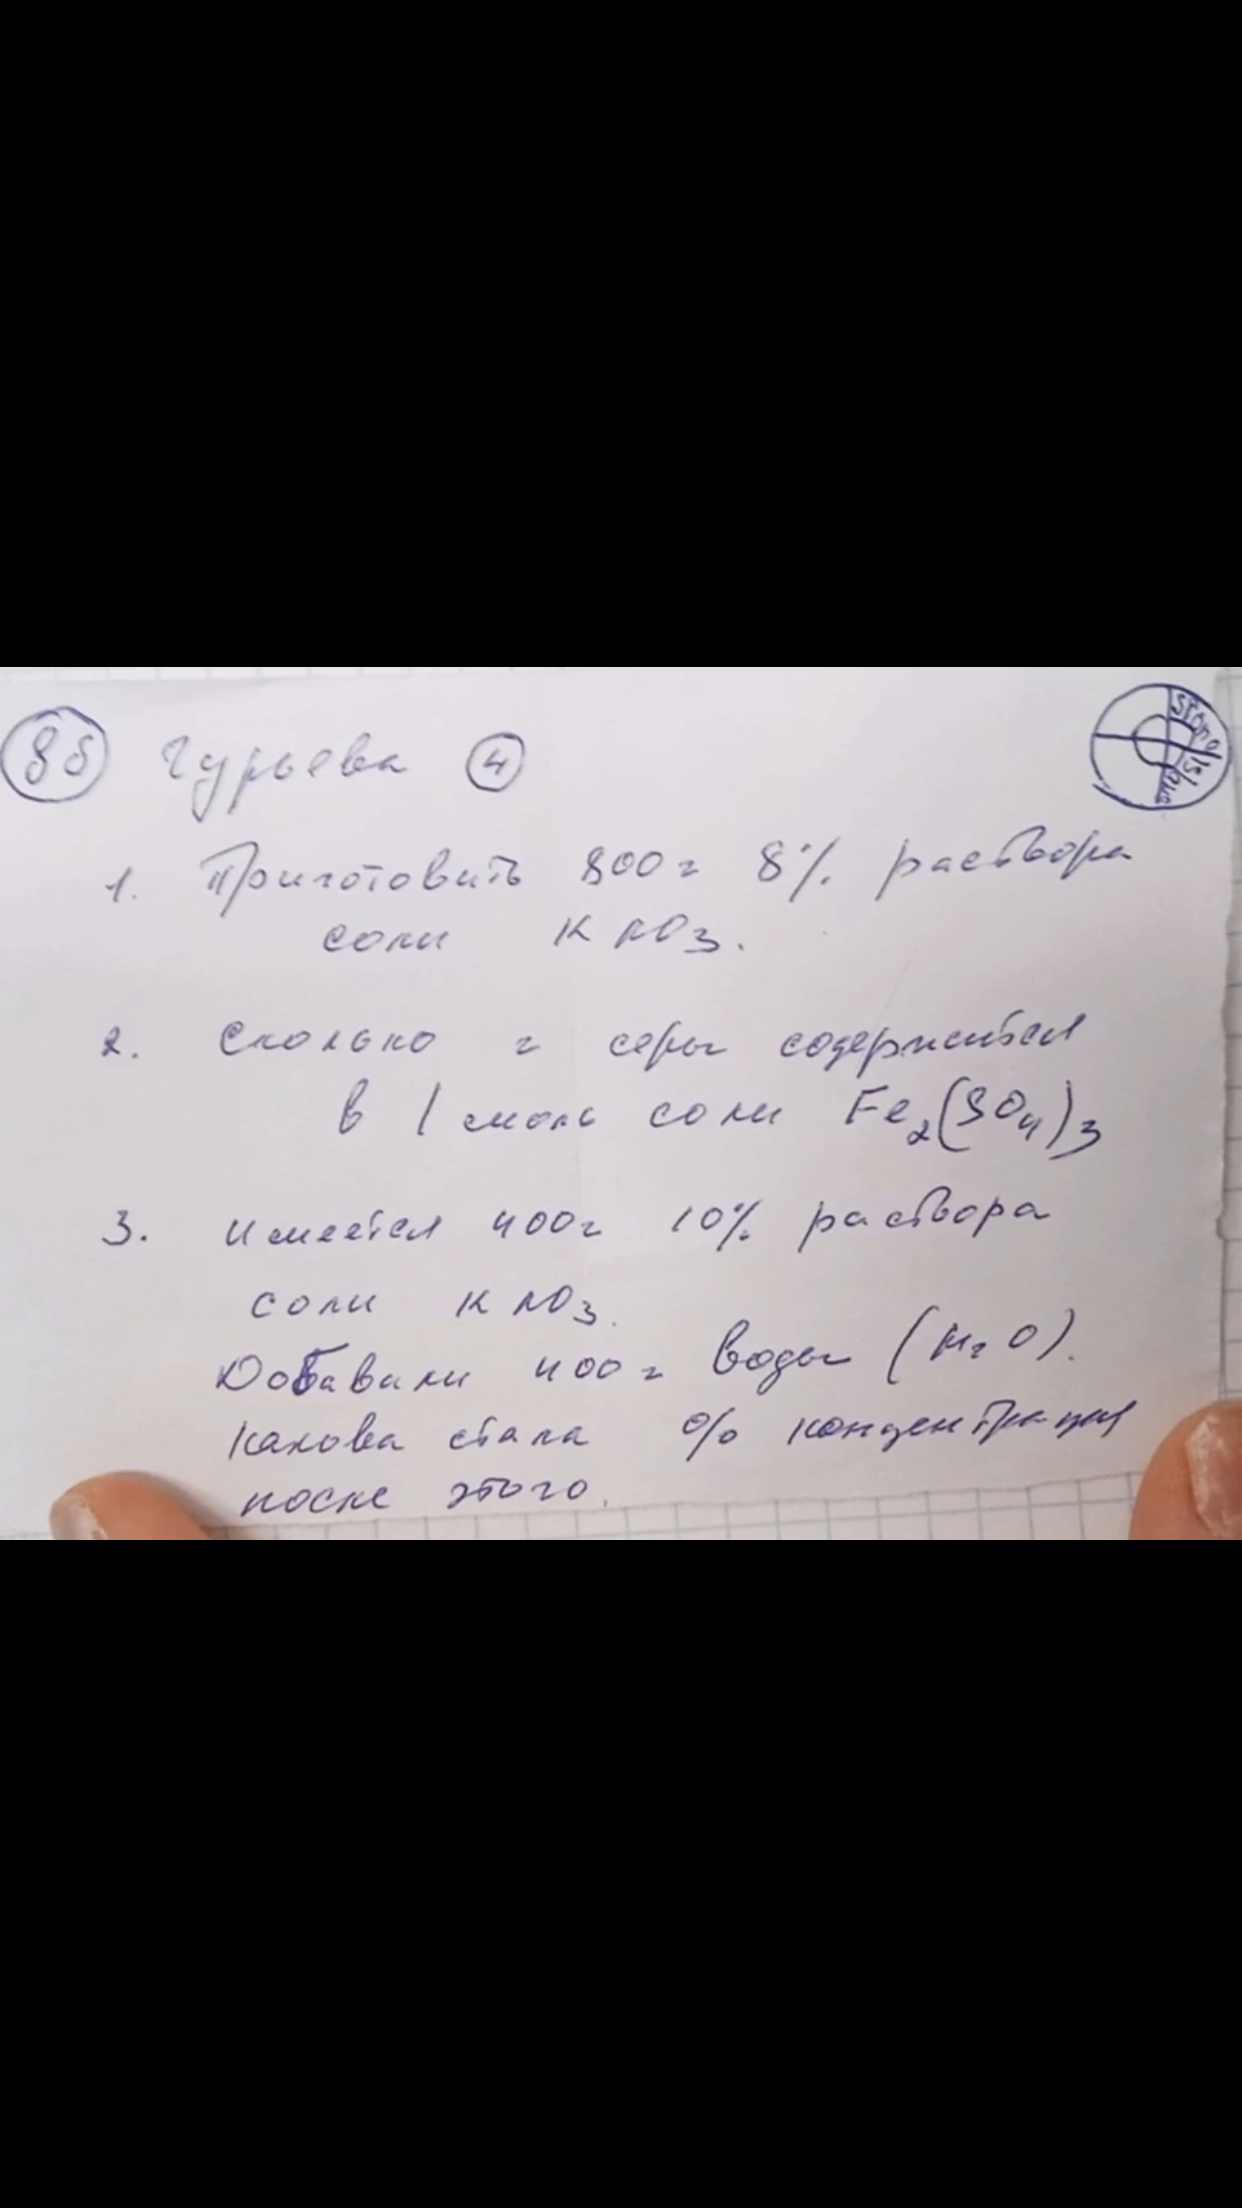 8б Гурьева 4
1. Приготовить 800 г 8% раствора
соли KNO3.
2. Сколько г серы содержится
в 1 моль соли Fe2(SO4)3
3. Имеется 400 г 10% раствора
соли KNO3.
Добавили 400 г воды (H2O).
Какова стала % концентрация
после этого.